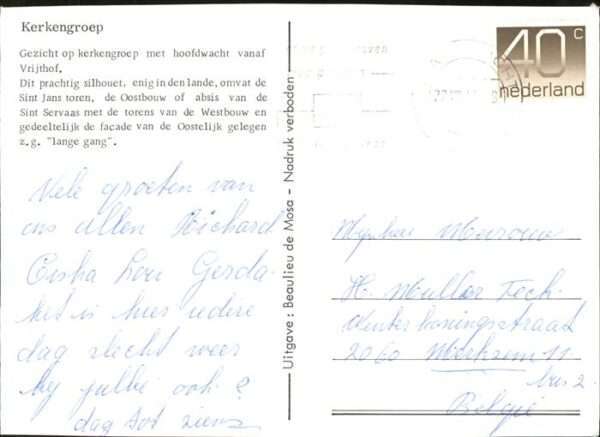 Kerkengroep
Gezicht op kerkengroep met hoofdwacht vanaf
Vrijthof.
Dit prachtig silhouet, enig in den lande, omvat de
Sint Jans toren, de Oostbouw of absis van de
Sint Servaas met de torens van de Westbouw en
gedeeltelijk de facade van de Oostelijk gelegen
z.g. "lange gang".
Vele groeten van
ons allen Richard
Lou Gerda
het is hier iedere
dag slecht weer
by jullie ook?
dag tot ziens
Uitgave : Beaulieu de Mosa - Nadruk verboden
40 c
nederland
Mynheer
H. Muller Tech
2060 Merksem 11
bus 2
België